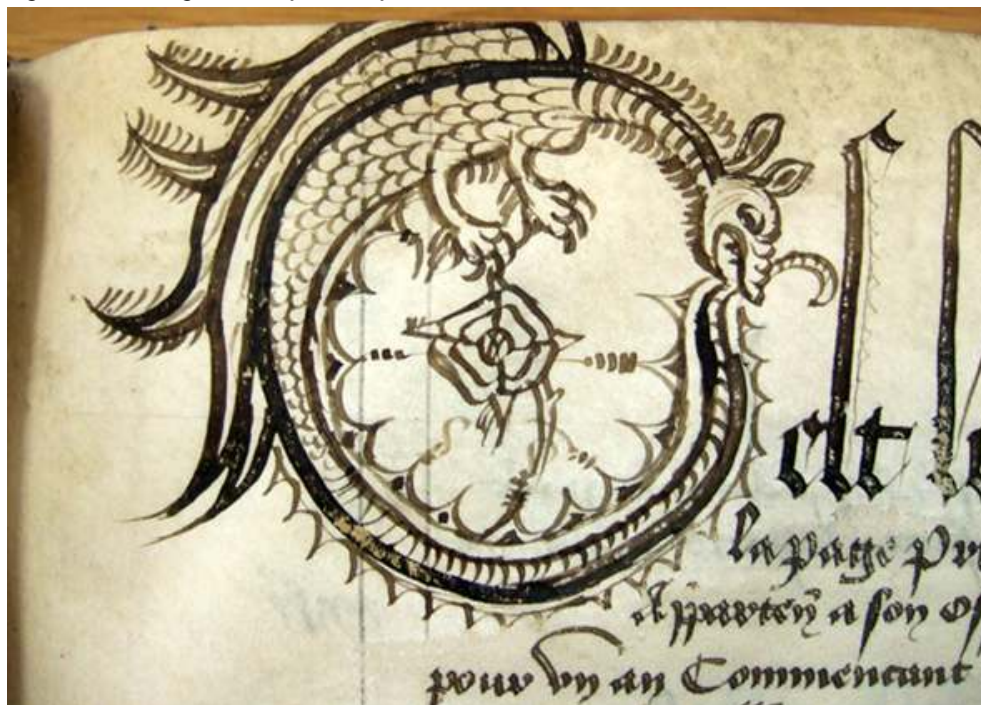 Cest le
la page pr
Apparteñ a son of
pour vn an Commencant